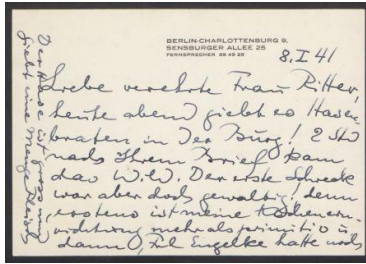 BERLIN-CHARLOTTENBURG 9,
SENSBURGER ALLEE 25
FERNSPRECHER 99 49 25
8. I 41
Liebe verehrte Frau Ritter,
heute abend giebt es Hasen-
braten in der Burg! 2 Std
nach Ihrem Brief kam
das W.W. Der erste Schreck
war aber doch gewaltig! denn
erstens ist meine
mehr als primitiv u.
dann, Frl Engelke hatte noch
Der Hase ist gross und
giebt eine Menge Fleisch